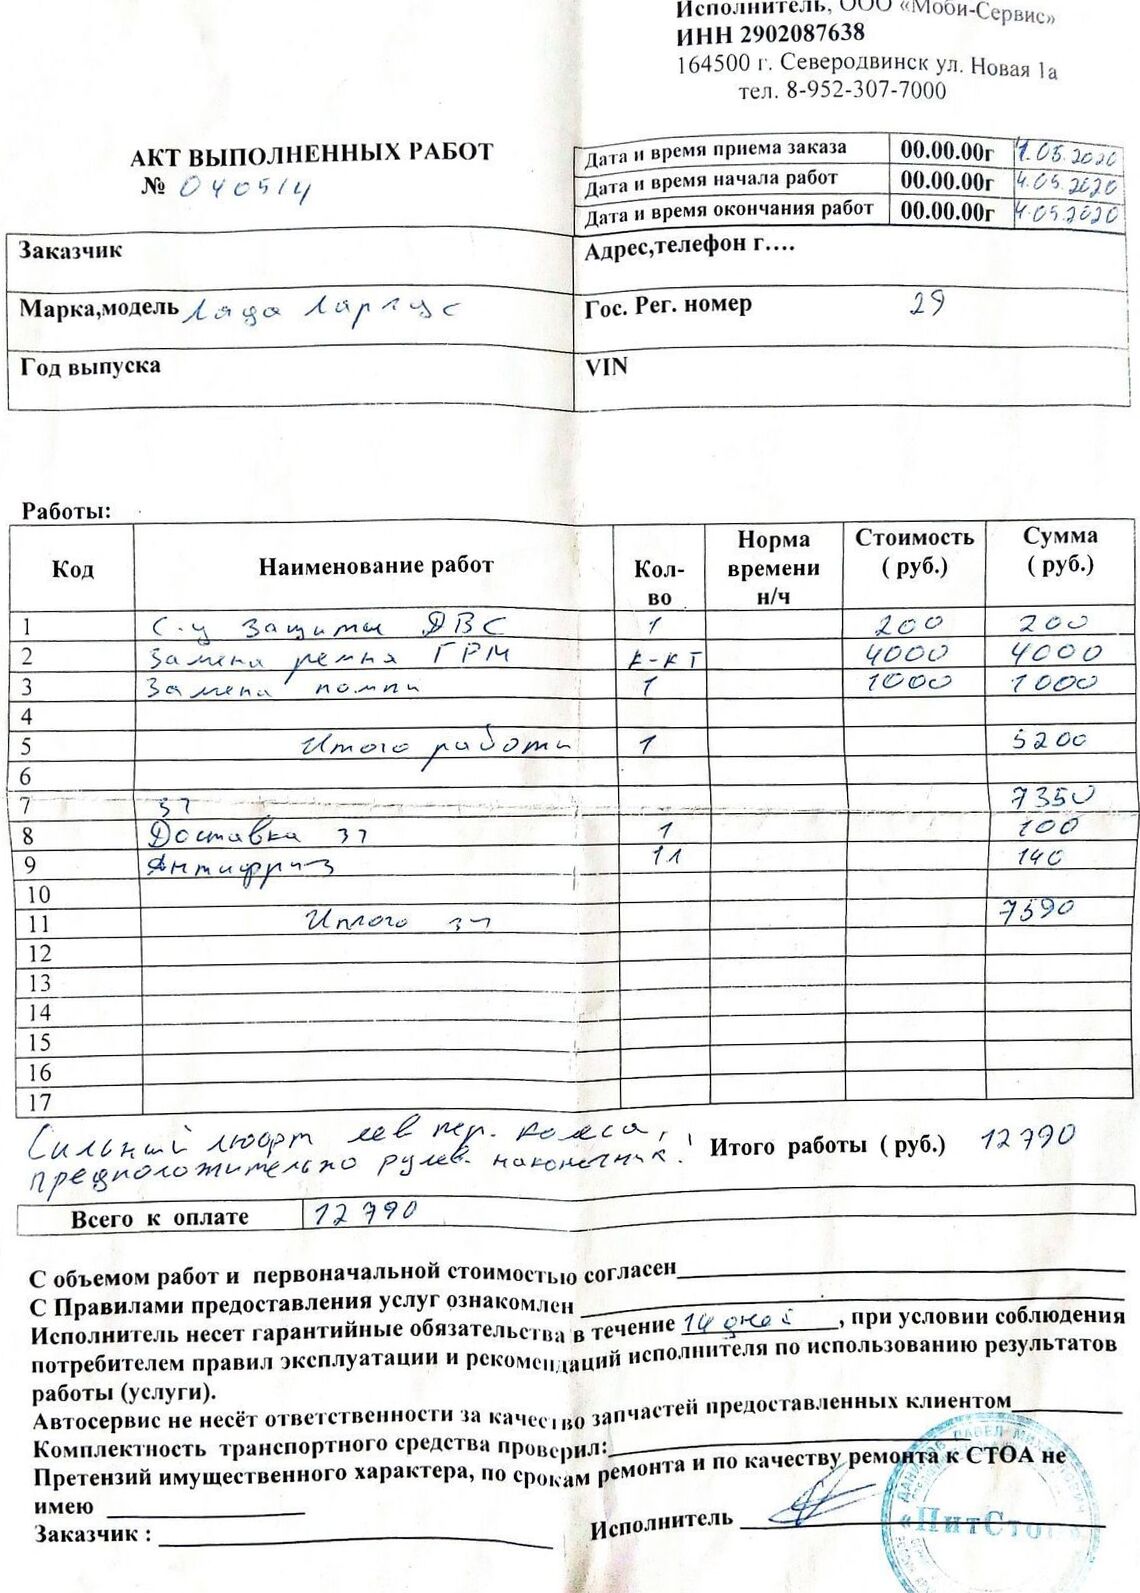 Исполнитель, ООО «Моби-Сервис»
ИНН 2902087638
164500 г. Северодвинск ул. Новая 1а
тел. 8-952-307-7000
АКТ ВЫПОЛНЕННЫХ РАБОТ
№ 040514
Дата и время приема заказа 00.00.00г 1.05.2020
Дата и время начала работ 00.00.00г 4.05.2020
Дата и время окончания работ 00.00.00г 4.05.2020
Заказчик Адрес,телефон г....
Марка,модель Лада Ларгус Гос. Рег. номер 29
Год выпуска VIN
Работы:
Код Наименование работ Кол-во Норма времени н/ч Стоимость ( руб.) Сумма ( руб.)
1 С-у защиты ДВС 1 200 200
2 Замена ремня ГРМ к-кт 4000 4000
3 Замена помпы 1 1000 1000
4
5 Итого работы 1 5200
6
7 зч 7350
8 Доставка зч 1 100
9 Антифриз 1л 140
10
11 Итого зч 7590
12
13
14
15
16
17
Сильный люфт лев пер. колеса,
предположительно рулев. наконечник! Итого работы ( руб.) 12790
Всего к оплате 12790
С объемом работ и первоначальной стоимостью согласен
С Правилами предоставления услуг ознакомлен
Исполнитель несет гарантийные обязательства в течение 14 дней, при условии соблюдения
потребителем правил эксплуатации и рекомендаций исполнителя по использованию результатов
работы (услуги).
Автосервис не несёт ответственности за качество запчастей предоставленных клиентом
Комплектность транспортного средства проверил:
Претензий имущественного характера, по срокам ремонта и по качеству ремонта к СТОА не
имею
Заказчик : Исполнитель
«ПитСтоп»